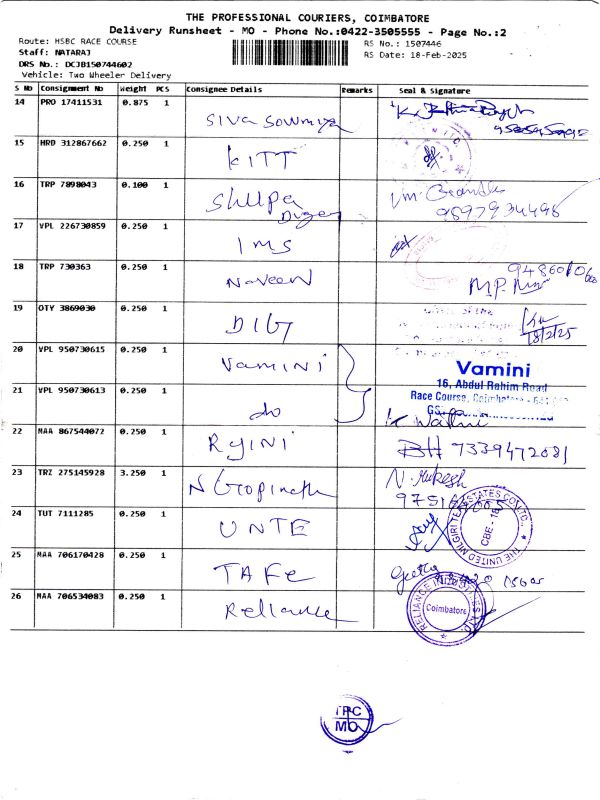 THE PROFESSIONAL COURIERS, COIMBATORE
Delivery Runsheet - MO - Phone No.:0422-3505555 - Page No.:2
Route: HSBC RACE COURSE
RS No.: 1507446
Staff: NATARAJ
RS Date: 18-Feb-2025
DRS No.: DCJB150744602
Vehicle: Two Wheeler Delivery
S No Consignment No Weight PCS Consignee Details Remarks Seal & Signature
14 PRO 17411531 0.875 1 Siva Sowmiya
15 HRD 312867662 0.250 1 KITT
16 TRP 7898043 0.100 1 Shilpa
9597934498
17 VPL 226730859 0.250 1 IMS
18 TRP 730363 0.250 1 Naveen
M.P.
19 OTY 3869030 0.250 1 DIG
18/2/25
20 VPL 950730615 0.250 1 Vamini
Vamini
16, Abdul Rahim Road
21 VPL 950730613 0.250 1 do
Race Course, Coimbatore -
22 MAA 867544072 0.250 1 Ryini 7339472081
23 TRZ 275145928 3.250 1 N Gopinath N. Mukesh
24 TUT 7111285 0.250 1 UNTE
THE UNITED NILGIRI TEA ESTATES CO. LTD.
CBE - 18
25 MAA 706170428 0.250 1 TAFE Geetha
26 MAA 706534083 0.250 1 Reliance
RELIANCE INDUSTRIES LTD.
Coimbatore
TPC
MO